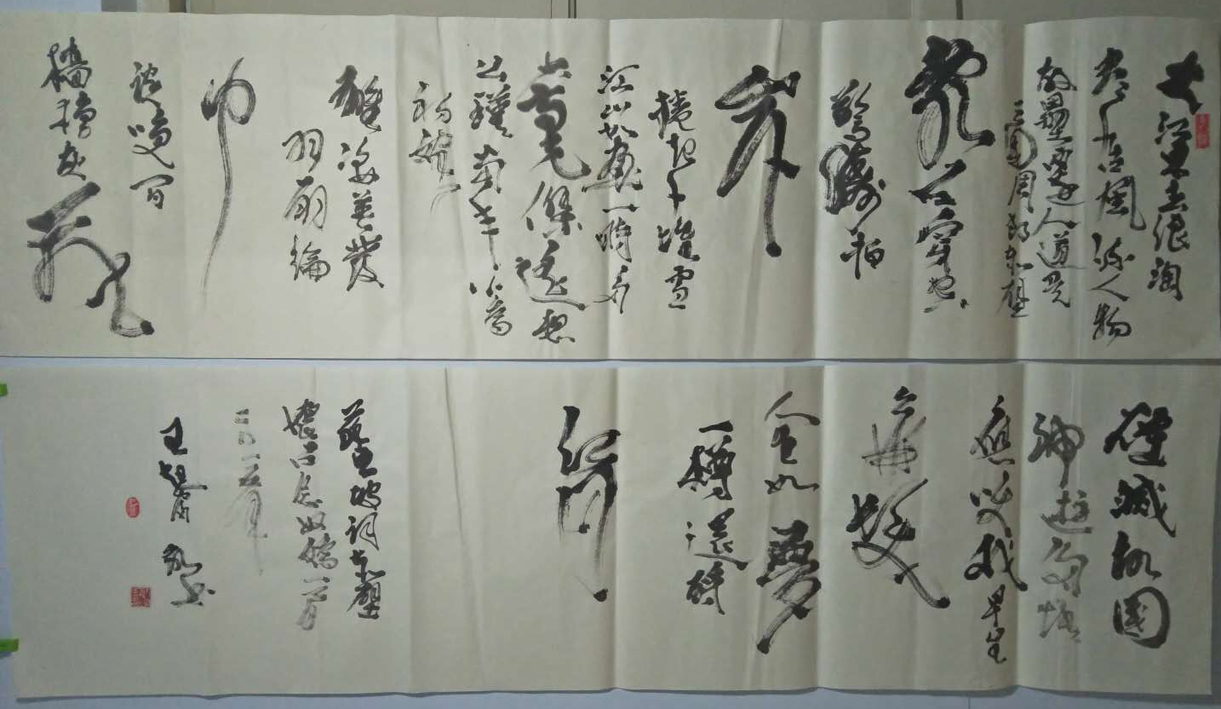 大江东去浪淘
尽千古風流人物
故壘西邊人道是
三國周郎赤壁
亂石穿空
驚濤拍
岸
捲起千堆雪
江山如畫一時多
少豪傑遙想
公瑾當年小喬
初嫁了
雄姿英發
羽扇綸
巾
談笑間
檣櫓灰飛
煙滅故國
神遊多情
應笑我早生
華髮
人生如夢
一樽還酹
江月
蘇東坡詞赤壁
懷古念奴嬌
王